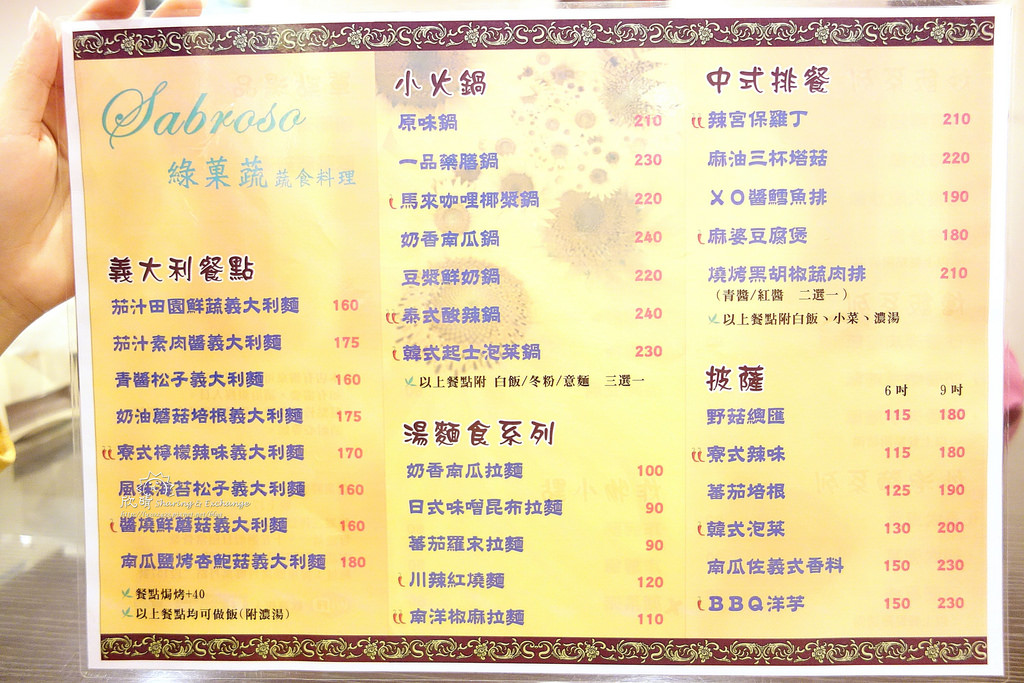 Sabroso
綠菓蔬 蔬食料理
義大利餐點
茄汁田園鮮蔬義大利麵 160
茄汁素肉醬義大利麵 175
青醬松子義大利麵 160
奶油蘑菇培根義大利麵 175
寮式檸檬辣味義大利麵 170
風味海苔松子義大利麵 160
欣晴 Sharing & Exchange
醬燒鮮蘑菇義大利麵 160
南瓜鹽烤杏鮑菇義大利麵 180
餐點焗烤+40
以上餐點均可做飯(附濃湯)
小火鍋
原味鍋 210
一品藥膳鍋 230
馬來咖哩椰漿鍋 220
奶香南瓜鍋 240
豆漿鮮奶鍋 220
泰式酸辣鍋 240
韓式起士泡菜鍋 230
以上餐點附 白飯/冬粉/意麵 三選一
湯麵食系列
奶香南瓜拉麵 100
日式味噌昆布拉麵 90
蕃茄羅宋拉麵 90
川辣紅燒麵 120
南洋椒麻拉麵 110
中式排餐
辣宮保雞丁 210
麻油三杯塔菇 220
XO醬鱈魚排 190
麻婆豆腐煲 180
燒烤黑胡椒蔬肉排 210
(青醬/紅醬 二選一)
以上餐點附白飯、小菜、濃湯
披薩 6吋 9吋
野菇總匯 115 180
寮式辣味 115 180
蕃茄培根 125 190
韓式泡菜 130 200
南瓜佐義式香料 150 230
BBQ洋芋 150 230